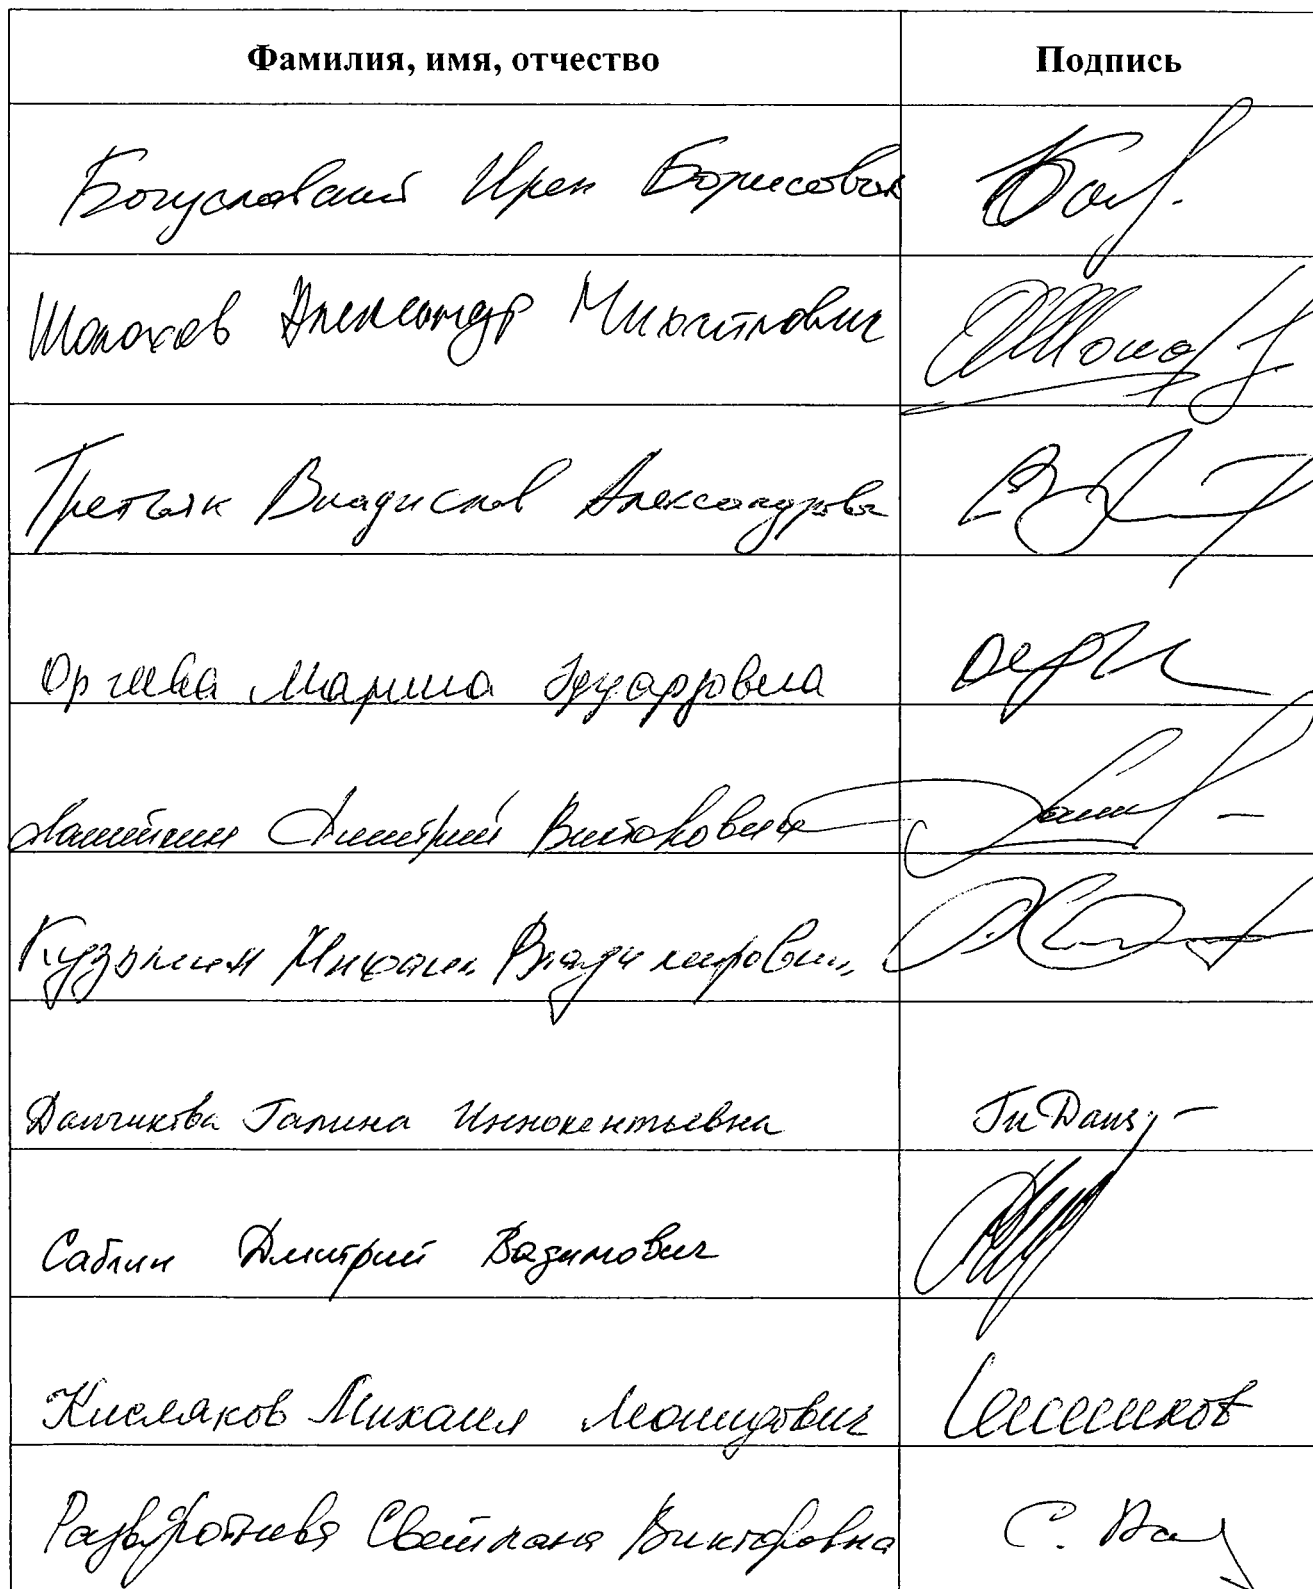 Фамилия, имя, отчество Подпись
Богуславский Ирек Борисович
Шолохов Александр Михайлович
Третьяк Владислав Александрович
Оргеева Марина Эдуардовна
Дмитрий Викторович
Кузьмин Михаил Владимирович
Данчикова Галина Иннокентьевна Ги Данч
Саблин Дмитрий Вадимович
Кисляков Михаил Леонидович
Разворотнева Светлана Викторовна С.